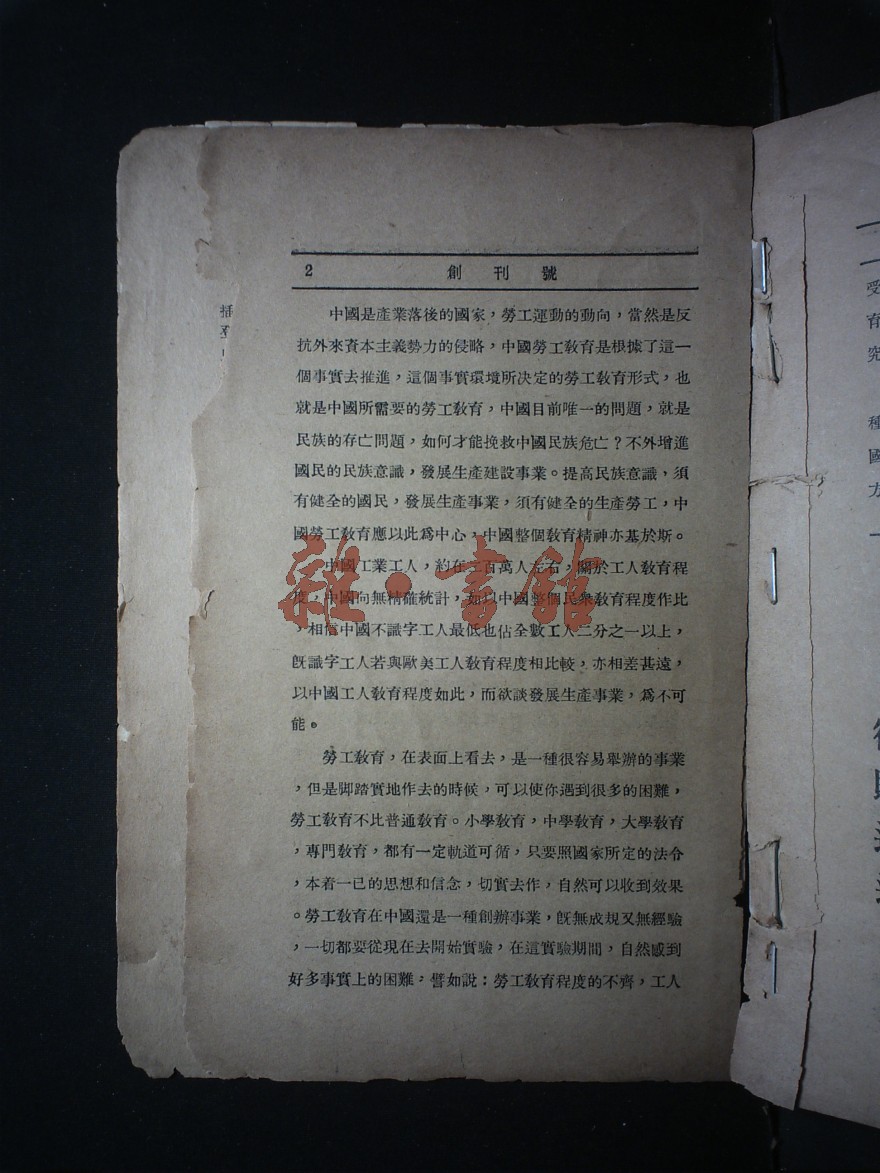 2 創刊號
中國是產業落後的國家，勞工運動的動向，當然是反
抗外來資本主義勢力的侵略，中國勞工教育是根據了這一
個事實去推進，這個事實環境所决定的勞工教育形式，也
就是中國所需要的勞工教育，中國目前唯一的問題，就是
民族的存亡問題，如何才能挽救中國民族危亡？不外增進
國民的民族意識，發展生產建設事業。提高民族意識，須
有健全的國民，發展生產事業，須有健全的生產勞工，中
國勞工教育應以此爲中心，中國整個教育精神亦基於斯。
中國工業工人，約在二百萬人左右，關於工人教育程
度，中國向無精確統計，如以中國整個民衆教育程度作比
，相信中國不識字工人最低也佔全數工人二分之一以上，
旣識字工人若與歐美工人教育程度相比較，亦相差甚遠，
以中國工人教育程度如此，而欲談發展生產事業，爲不可
能。
勞工教育，在表面上看去，是一種很容易舉辦的事業
，但是脚踏實地作去的時候，可以使你遇到很多的困難，
勞工教育不比普通教育。小學教育，中學教育，大學教育
，專門教育，都有一定軌道可循，只要照國家所定的法令
，本着一已的思想和信念，切實去作，自然可以收到效果
。勞工教育在中國還是一種創辦事業，旣無成規又無經驗
，一切都要從現在去開始實驗，在這實驗期間，自然感到
好多事實上的困難；譬如說：勞工教育程度的不齊，工人
雜·書館
受
育
究
種
國
方